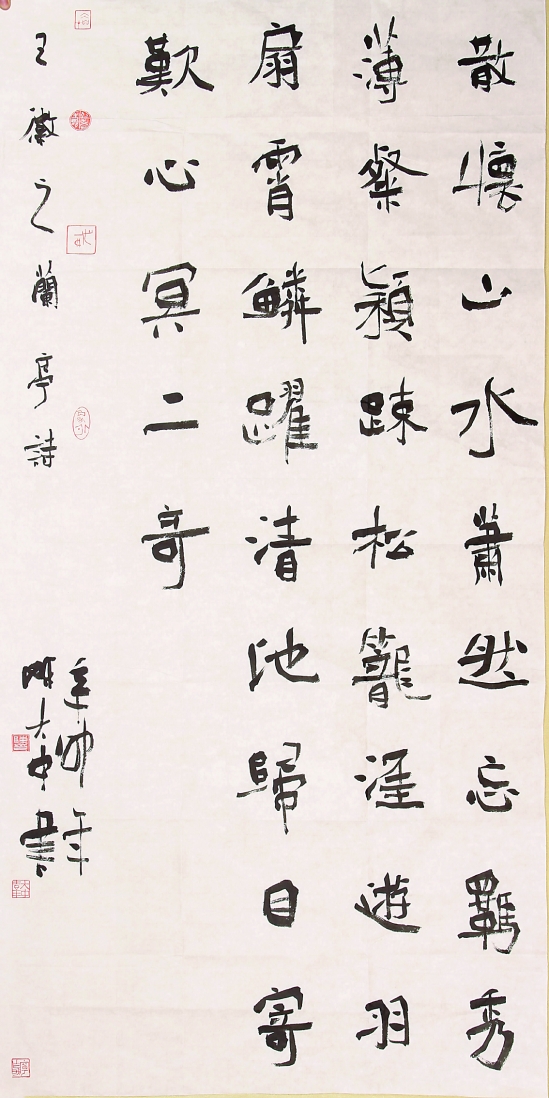 散懷山水蕭然忘羈秀
薄粲穎踈松籠涯遊羽
扇霄鱗躍清池歸目寄
歎心冥二奇
王徽之蘭亭詩
辛卯年
陳大中書